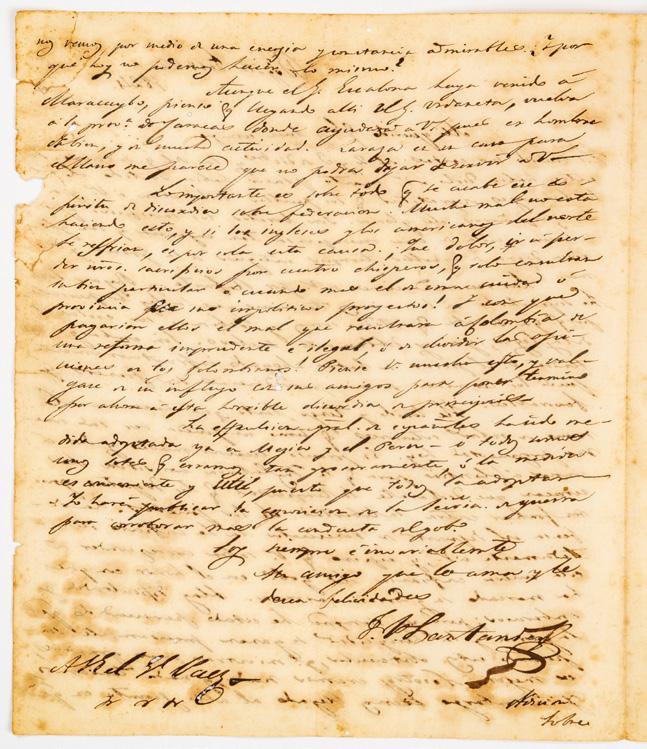 nos vemos por medio de una energia y constancia admirables. ¿Y por
que hoy no podemos hacer lo mismo?
Aunque el J. Escalona haya venido á
Maracaybo, pienso q llegando alli el J. Urdaneta, vuelva
á la prov.ª de Caracas donde ayudará a V. pues es hombre
de bien, y de mucha actividad. Zaraza es en caso para
el Llano me parece que no podia dejar de servir a V.
Lo importante es sobre todo q se acabe ese es-
piritu de discordia sobre federacion. Mucho mal nos esta
haciendo esto, y si los ingleses y los americanos del norte
se resfrian, es por sola esta causa. Que dolor, ir á per-
der nros. sacrificios por cuatro chisperos, q solo consultan
su bien particular ó cuando mas el de su ciudad ó
provincia en sus impoliticos proyectos! Y con que
pagarian ellos el mal que resultara á Colombia de
una reforma imprudente é ilegal, ó de dividir las opi-
niones de los Colombianos? Piense V. mucho esto, y val-
gase de su influjo con sus amigos para poner termino
por ahora á esta horrible discordia de principios
La espulsion gral. de españoles ha sido me-
dida adoptada ya en Mejico y el Perú - ó todos somos
muy, q erramos tan groseramente, ó la medida
es conveniente y util, puesto que todos la adoptan
Yo haré publicar la de la Secria. de guerra
para corroborar mas la conducta del gobo.
Soy siempre é invariablemente
su amigo que lo ama y le
desea felicidades
F. P. Santander
A Rel P. Paez
Adicion
sobre